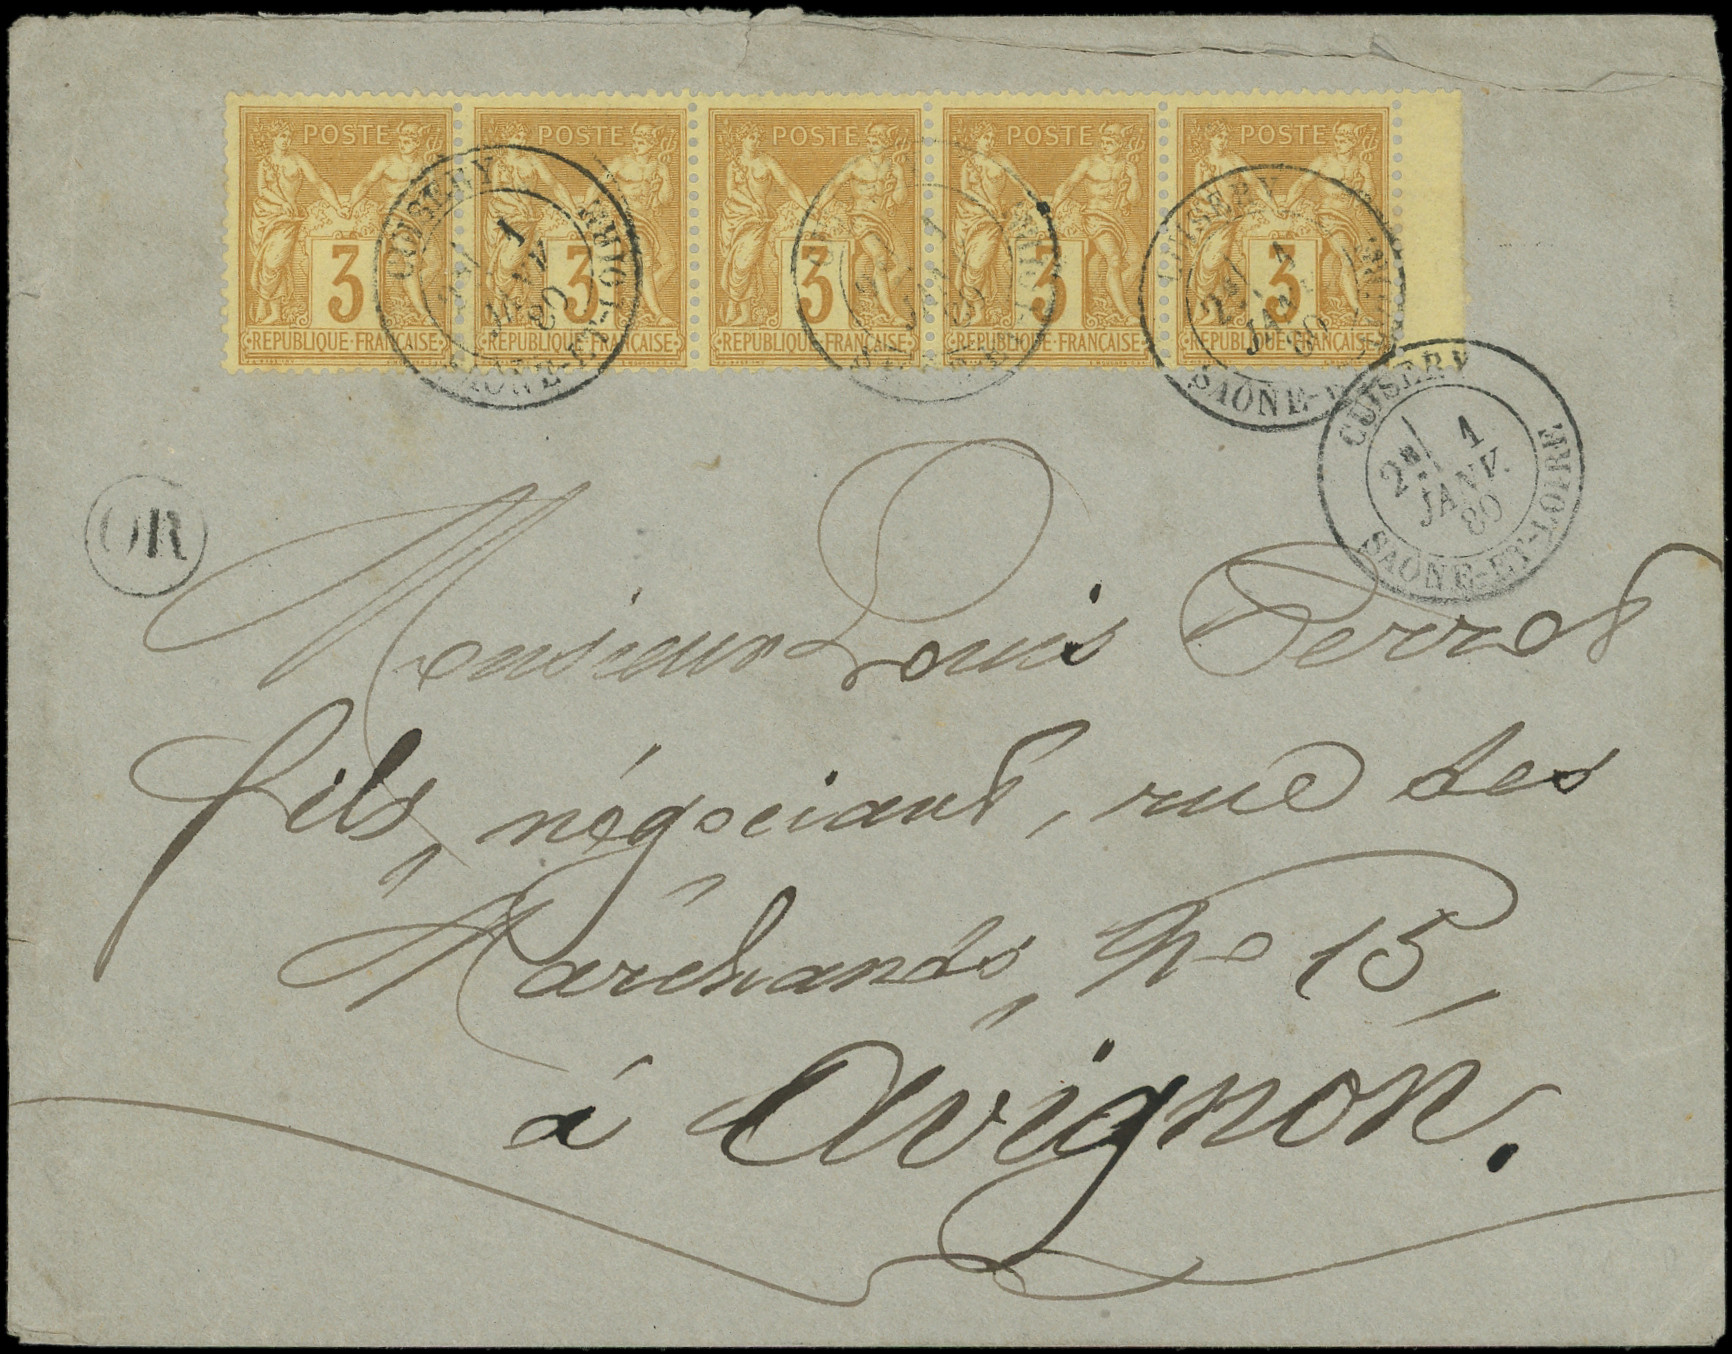 POSTE POSTE POSTE POSTE POSTE
3 3 3 3 3
REPUBLIQUE·FRANÇAISE REPUBLIQUE·FRANÇAISE REPUBLIQUE FRANÇAISE REPUBLIQUE·FRANÇAISE REPUBLIQUE·FRANÇAISE
CUISERY
1
JANV.
80
SAONE-ET-LOIRE
CUISERY
2E 1
JANV.
80
SAONE-ET-LOIRE
CUISERY
2E 1
JANV.
80
SAONE-ET-LOIRE
OR
Monsieur Louis Perrot
fils, négociant, rue des
Marchands, No 15,
à Avignon.